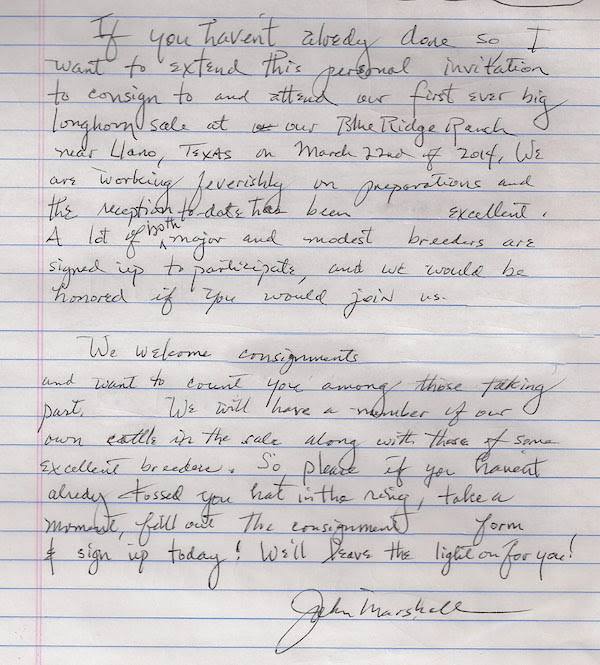 If you haven't alredy done so I
want to extend this personal invitation
to consign to and attend our first ever big
longhorn sale at our Blue Ridge Ranch
near Llano, Texas on March 22nd of 2014. We
are working feverishly on preparations and
the reception to-date has been excellent.
A lot of both major and modest breeders are
signed up to participate, and we would be
honored if you would join us.
We welcome consignments
and want to count you among those taking
part. We will have a number of our
own cattle in the sale along with those of some
excellent breeders. So please if you haven't
alredy tossed you hat in the ring, take a
moment, fill out the consignment form
& sign up today! We'll leave the light on for you!
John Marshall